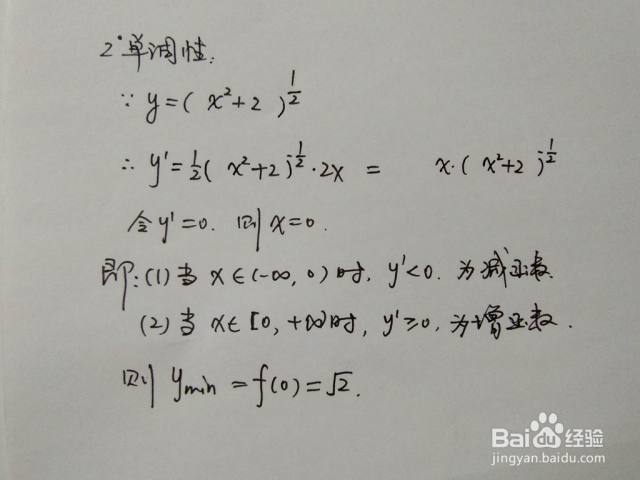 2°单调性:
∵ y=( x²+2 )^{1/2}
∴ y'=1/2( x²+2)^{-1/2}·2x = x·( x²+2)^{-1/2}
令y'=0. 则x=0.
即:(1)当 x∈(-∞, 0)时, y'<0. 为减函数.
(2)当 x∈[0, +∞)时, y'≥0, 为增函数.
则 y_min =f(0)=√2.
Bai du 经验
jingyan.baidu.com